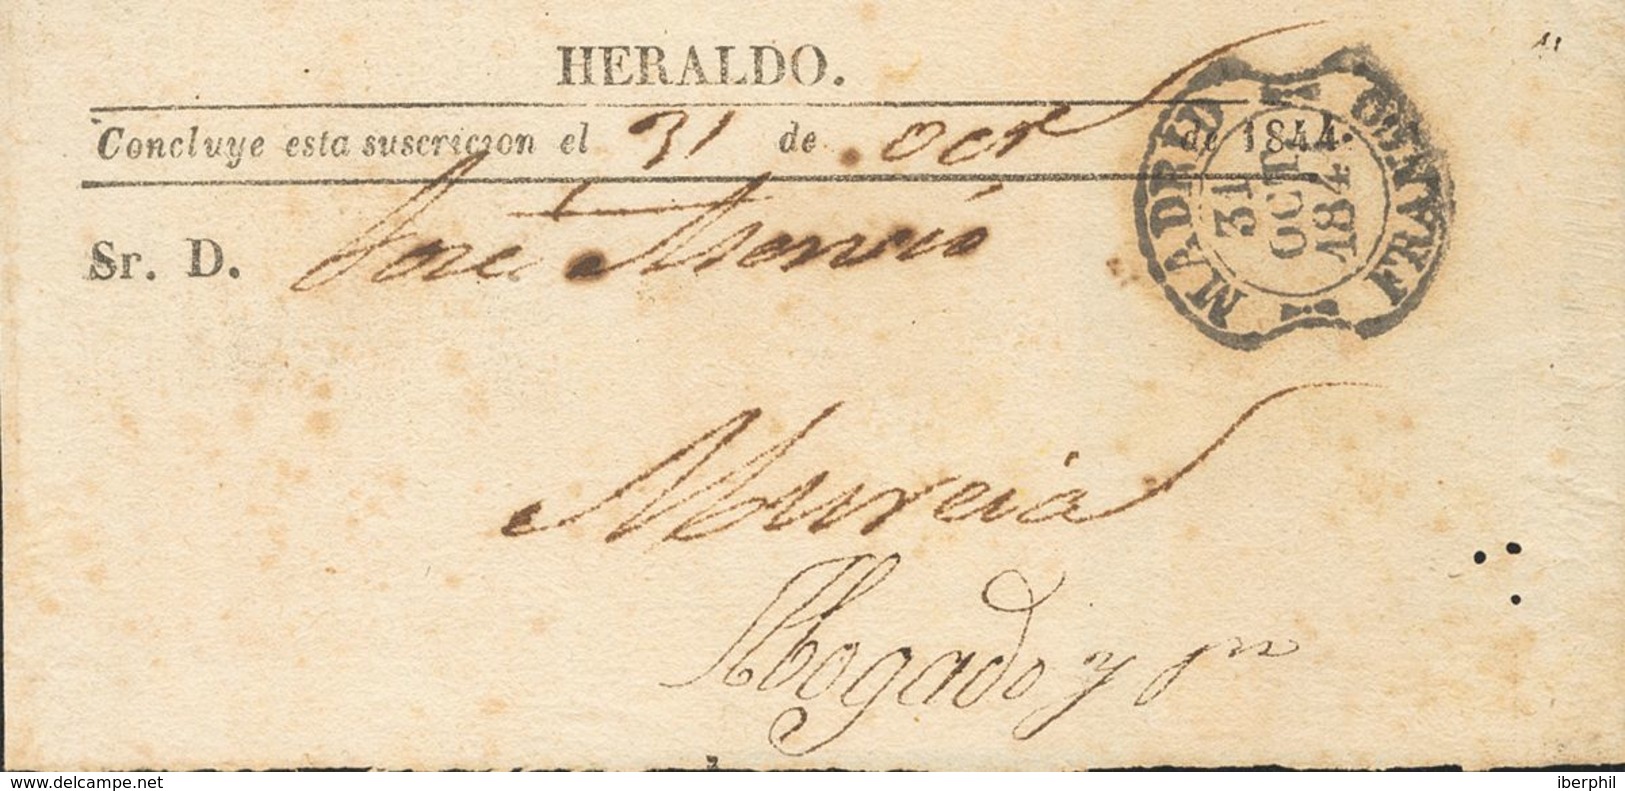 HERALDO.
Concluye esta suscricion el 31 de Oct.e de 1844.
Sr. D. José Asensio
Murcia
Abogado y
MADRID FRANCO
31
OCT.
1844
www.delcampe.net
iberphil